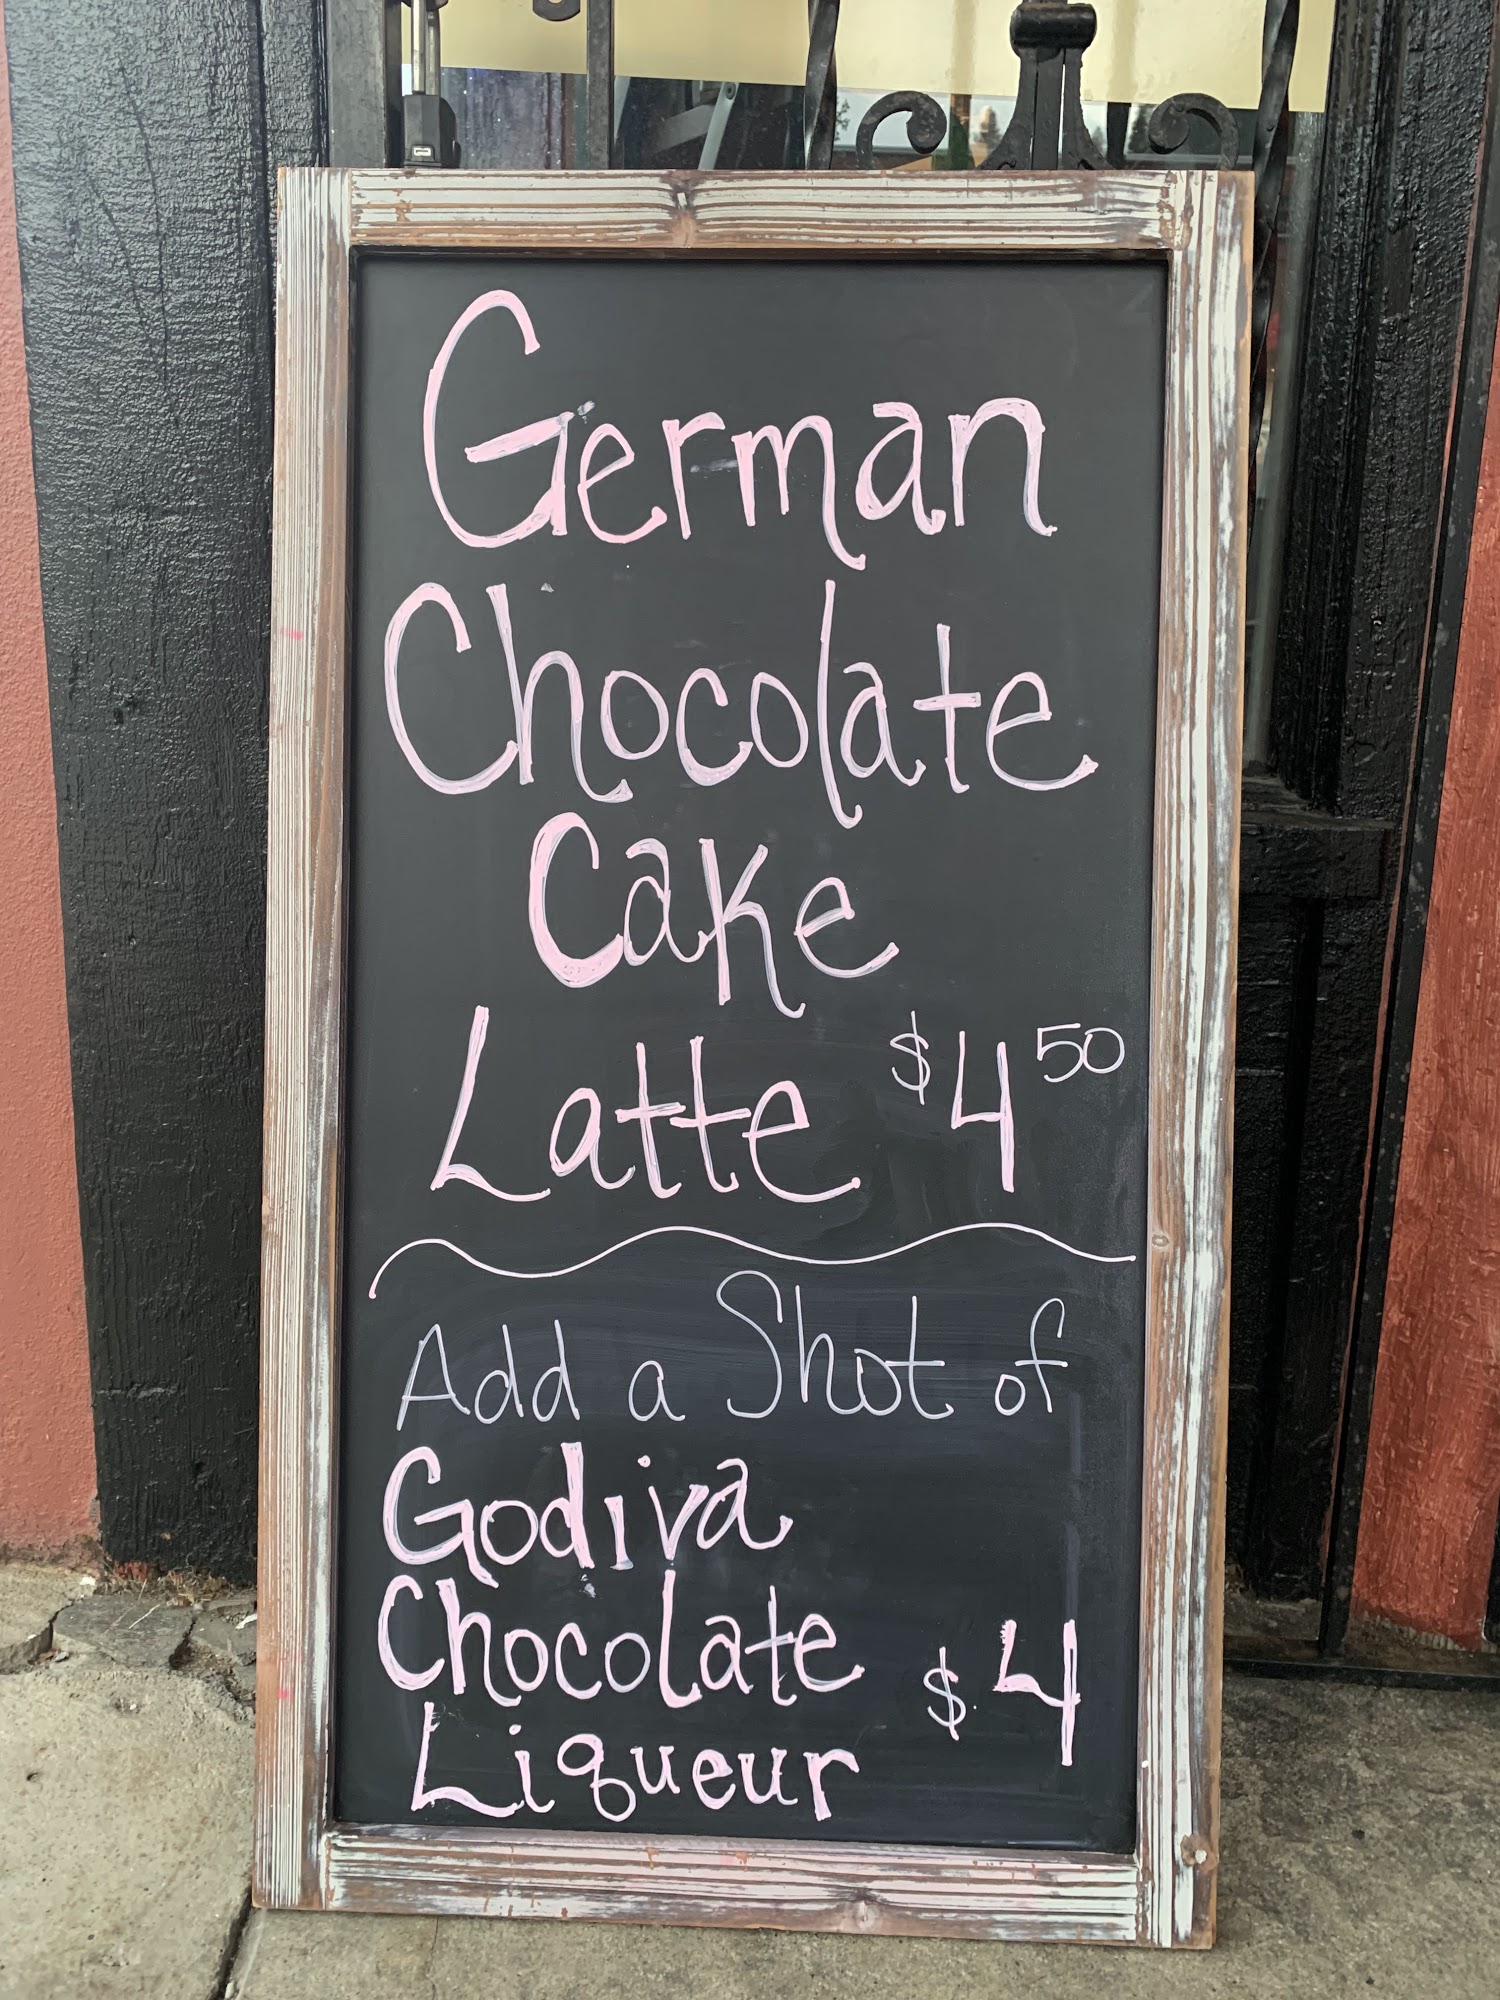 German
Chocolate
Cake
Latte $4 50
Add a Shot of
Godiva
Chocolate
Liqueur $4